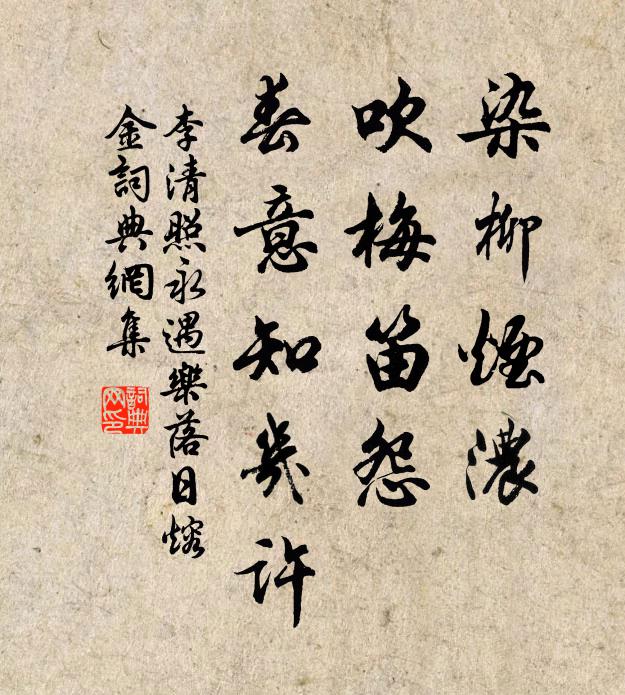 染柳煙濃
吹梅笛怨
春意知幾許
李清照永遇樂落日熔
金詞典網集
詞典
网印